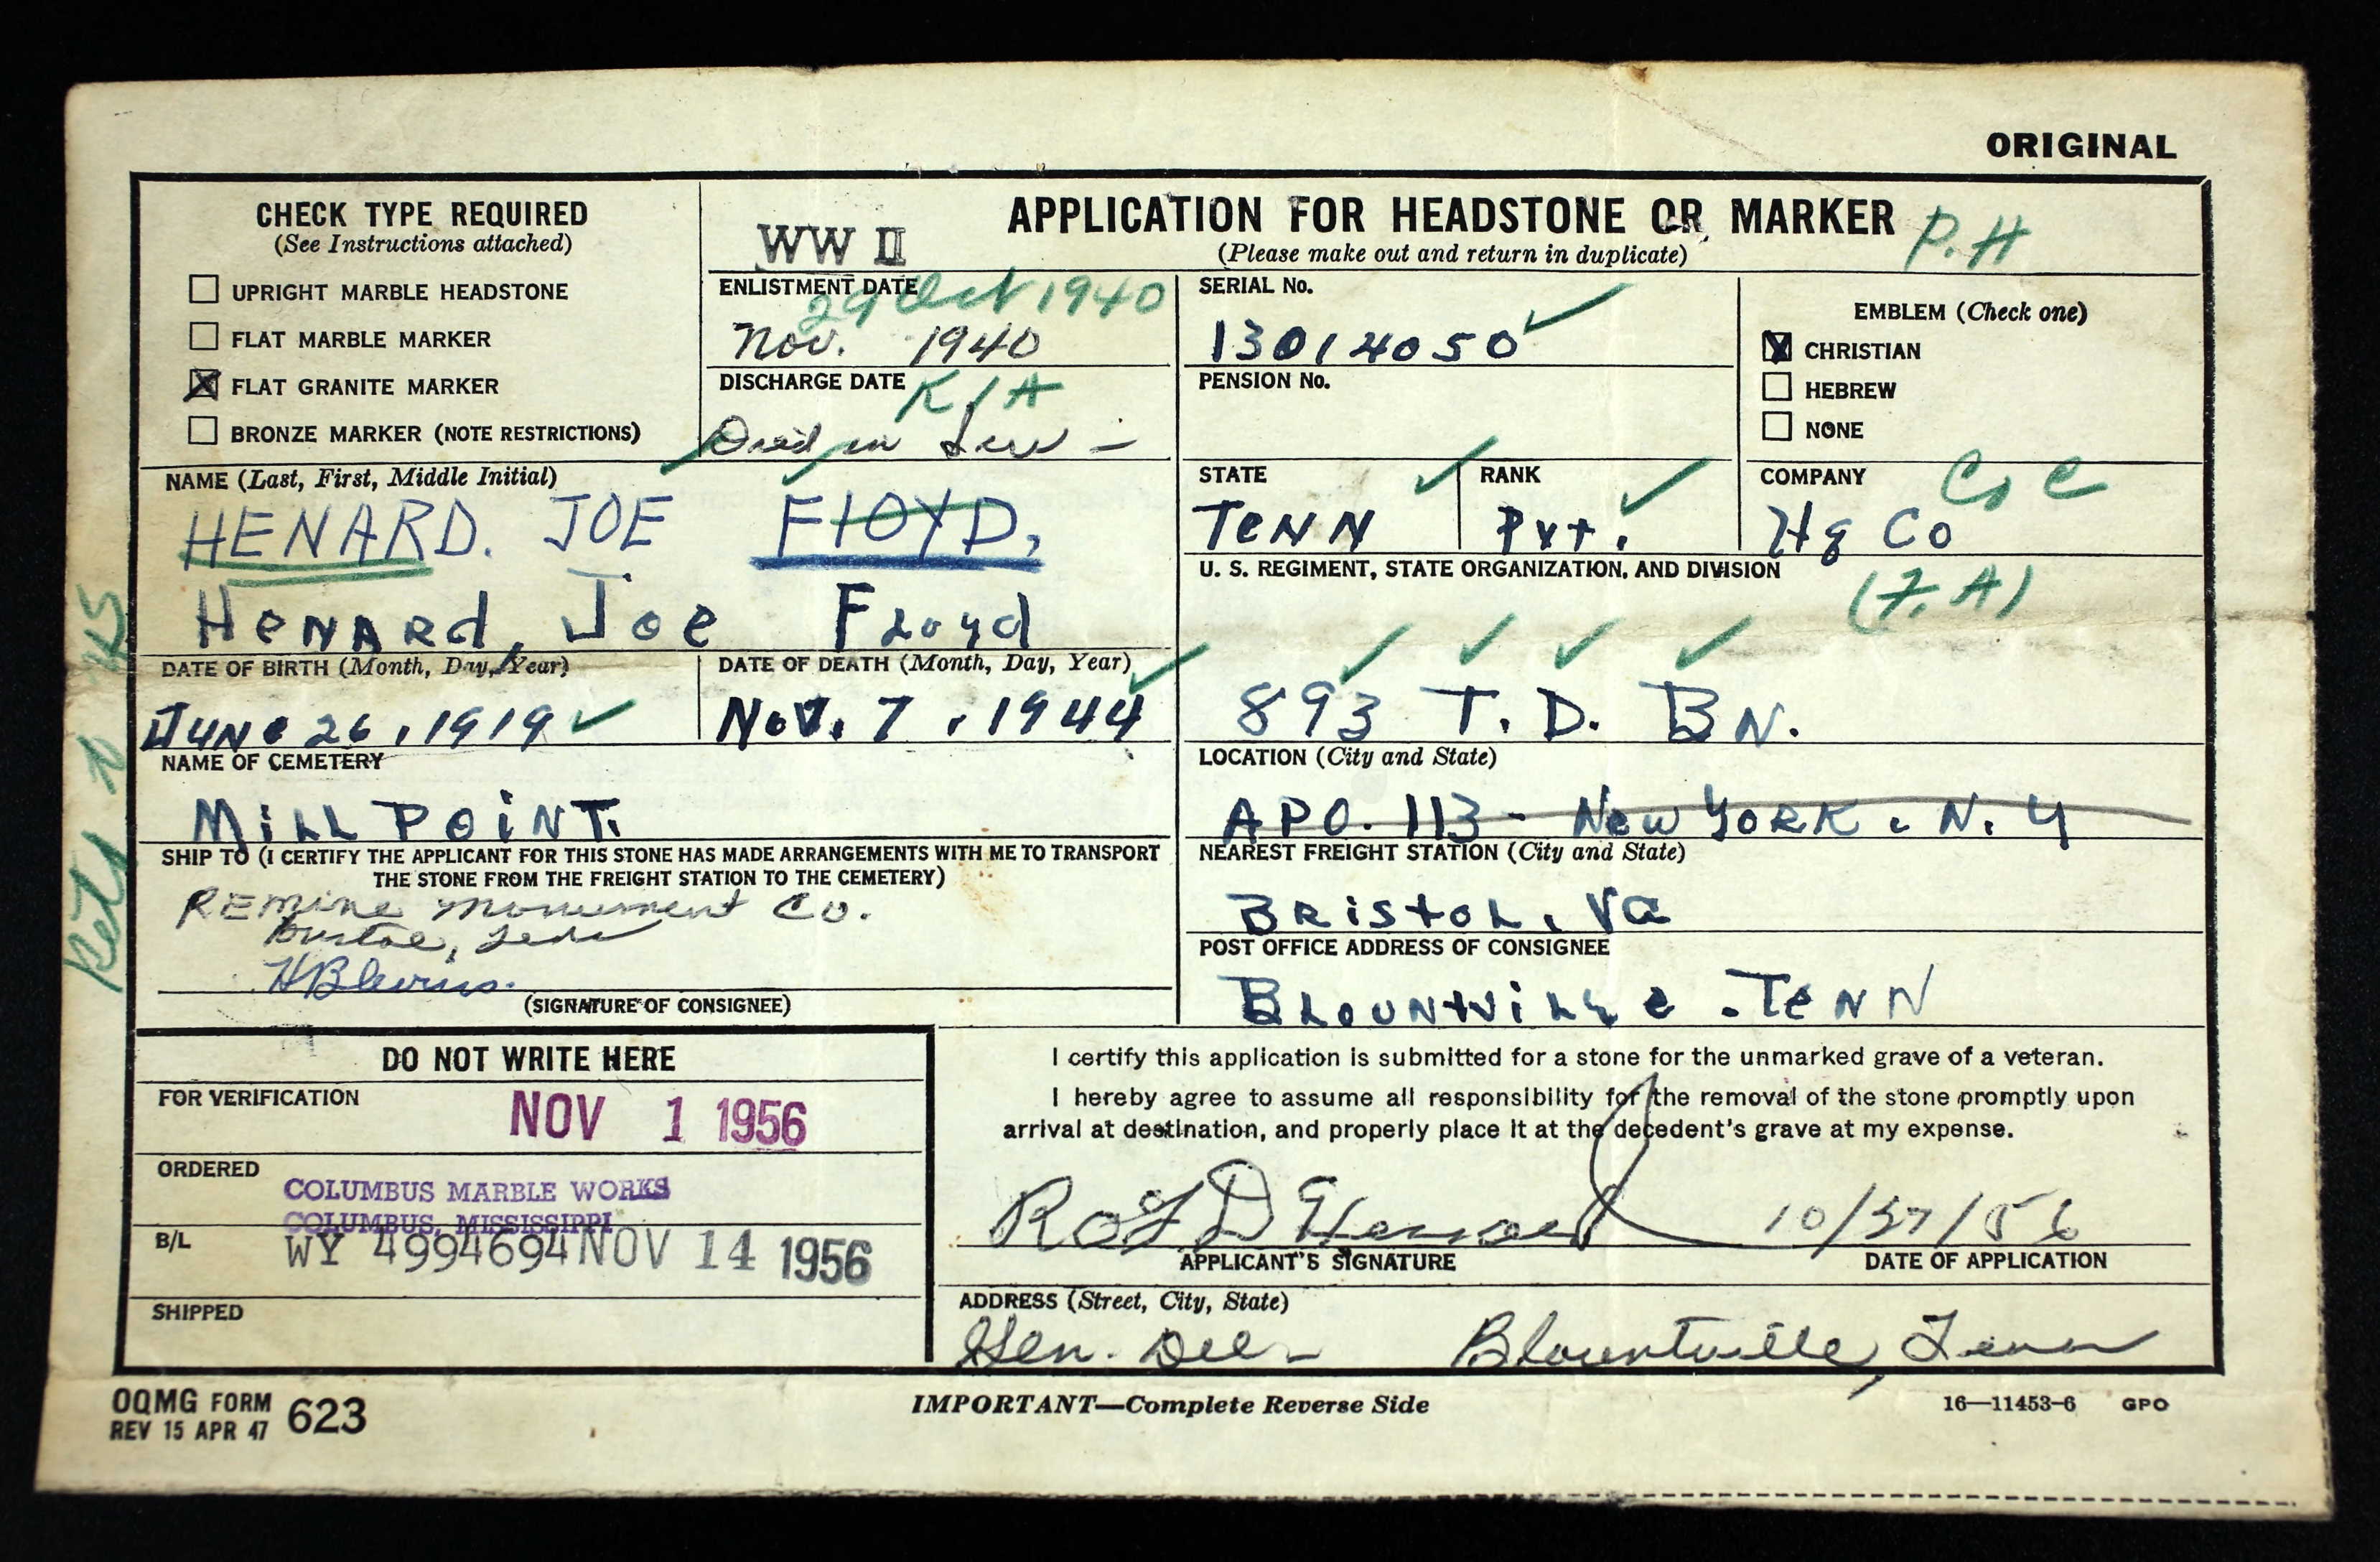 ORIGINAL
CHECK TYPE REQUIRED
(See Instructions attached)
UPRIGHT MARBLE HEADSTONE
FLAT MARBLE MARKER
FLAT GRANITE MARKER
BRONZE MARKER (NOTE RESTRICTIONS)
WW II
APPLICATION FOR HEADSTONE OR MARKER
P.H
(Please make out and return in duplicate)
ENLISTMENT DATE
29 Oct 1940
Nov. 1940
SERIAL No.
13014050
DISCHARGE DATE
K/A
PENSION No.
EMBLEM (Check one)
CHRISTIAN
HEBREW
NONE
NAME (Last, First, Middle Initial)
HENARD. JOE FLOYD,
HENARd, Joe FLoyd
STATE
TENN
RANK
Pvt.
COMPANY
Co C
Hq Co
U. S. REGIMENT, STATE ORGANIZATION, AND DIVISION
893 T. D. BN.
DATE OF BIRTH (Month, Day, Year)
JUNe 26, 1919
DATE OF DEATH (Month, Day, Year)
Nov. 7, 1944
NAME OF CEMETERY
MiLL POiNT.
LOCATION (City and State)
APO. 113 - New YORK. N. Y
SHIP TO (I CERTIFY THE APPLICANT FOR THIS STONE HAS MADE ARRANGEMENTS WITH ME TO TRANSPORT
THE STONE FROM THE FREIGHT STATION TO THE CEMETERY)
REmine monument Co.
Bristol, Tenn
H Blevins.
(SIGNATURE OF CONSIGNEE)
NEAREST FREIGHT STATION (City and State)
BRistoL, Va
POST OFFICE ADDRESS OF CONSIGNEE
BLOUNtViLLe. TeNN
DO NOT WRITE HERE
FOR VERIFICATION
NOV 1 1956
ORDERED
COLUMBUS MARBLE WORKS
COLUMBUS, MISSISSIPPI
B/L
WY 4994694 NOV 14 1956
SHIPPED
I certify this application is submitted for a stone for the unmarked grave of a veteran.
I hereby agree to assume all responsibility for the removal of the stone promptly upon
arrival at destination, and properly place it at the decedent's grave at my expense.
APPLICANT'S SIGNATURE
DATE OF APPLICATION
ADDRESS (Street, City, State)
Gen. Del - Blountville, Tenn
OQMG FORM 623
REV 15 APR 47
IMPORTANT—Complete Reverse Side
16—11453-6 GPO